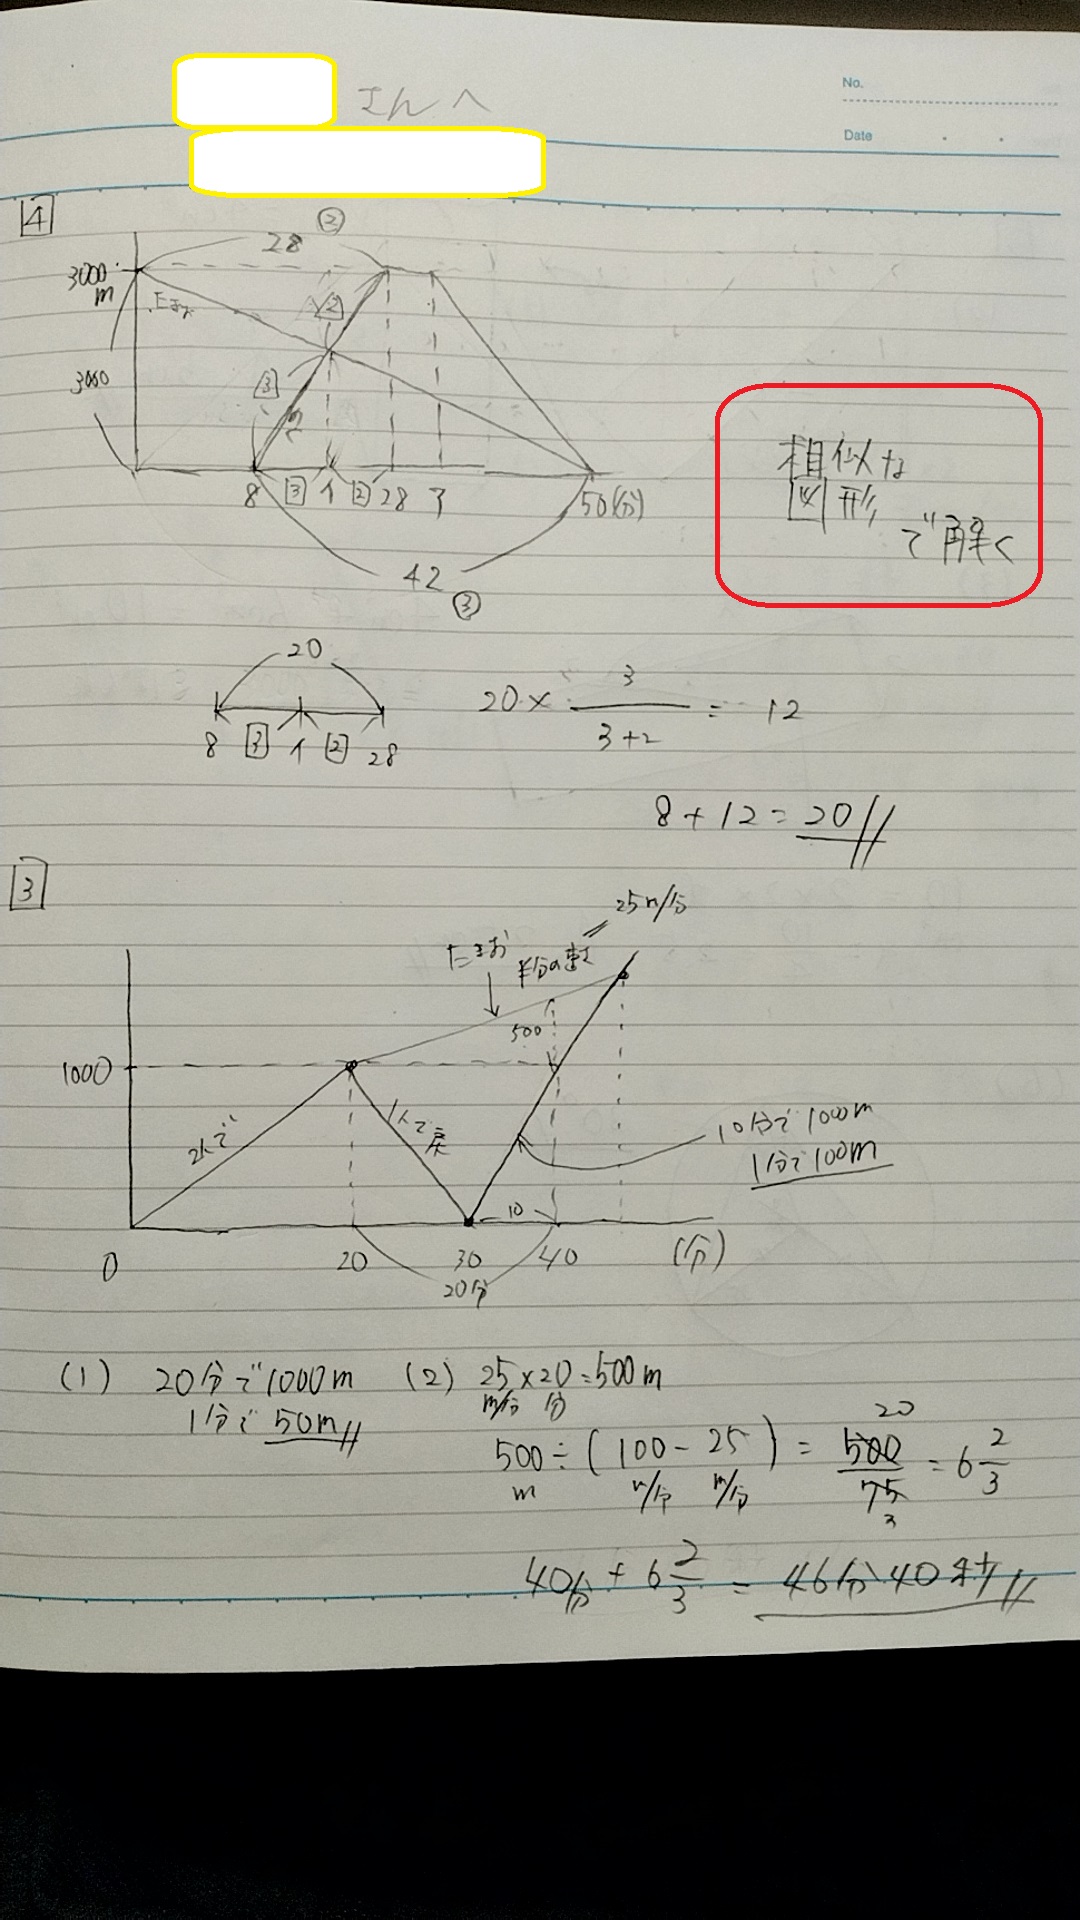 さんへ
No.
Date
4
②
28
3000
m
2
3000
3
8 3 ↑ 2 28 ↑ 50(分)
42
③
相似な
図形
で解く
20
8 3 ↑ 2 28
20×3/(3+2)=12
8+12=20
3
25m/分
たまお 半分の速さ
500
1000
2人で
1人で戻
10分で1000m
1分で100m
10
0 20 30 40 (分)
20分
(1) 20分で1000m
1分で50m
(2) 25×20=500m
m/分 分
500÷(100-25)=500/75=6 2/3
20
m m/分 m/分
3
40分+6 2/3=46分40秒